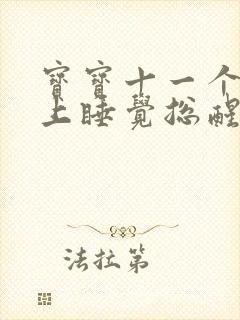 寶寶十一个
上睡覺總醒
法拉第